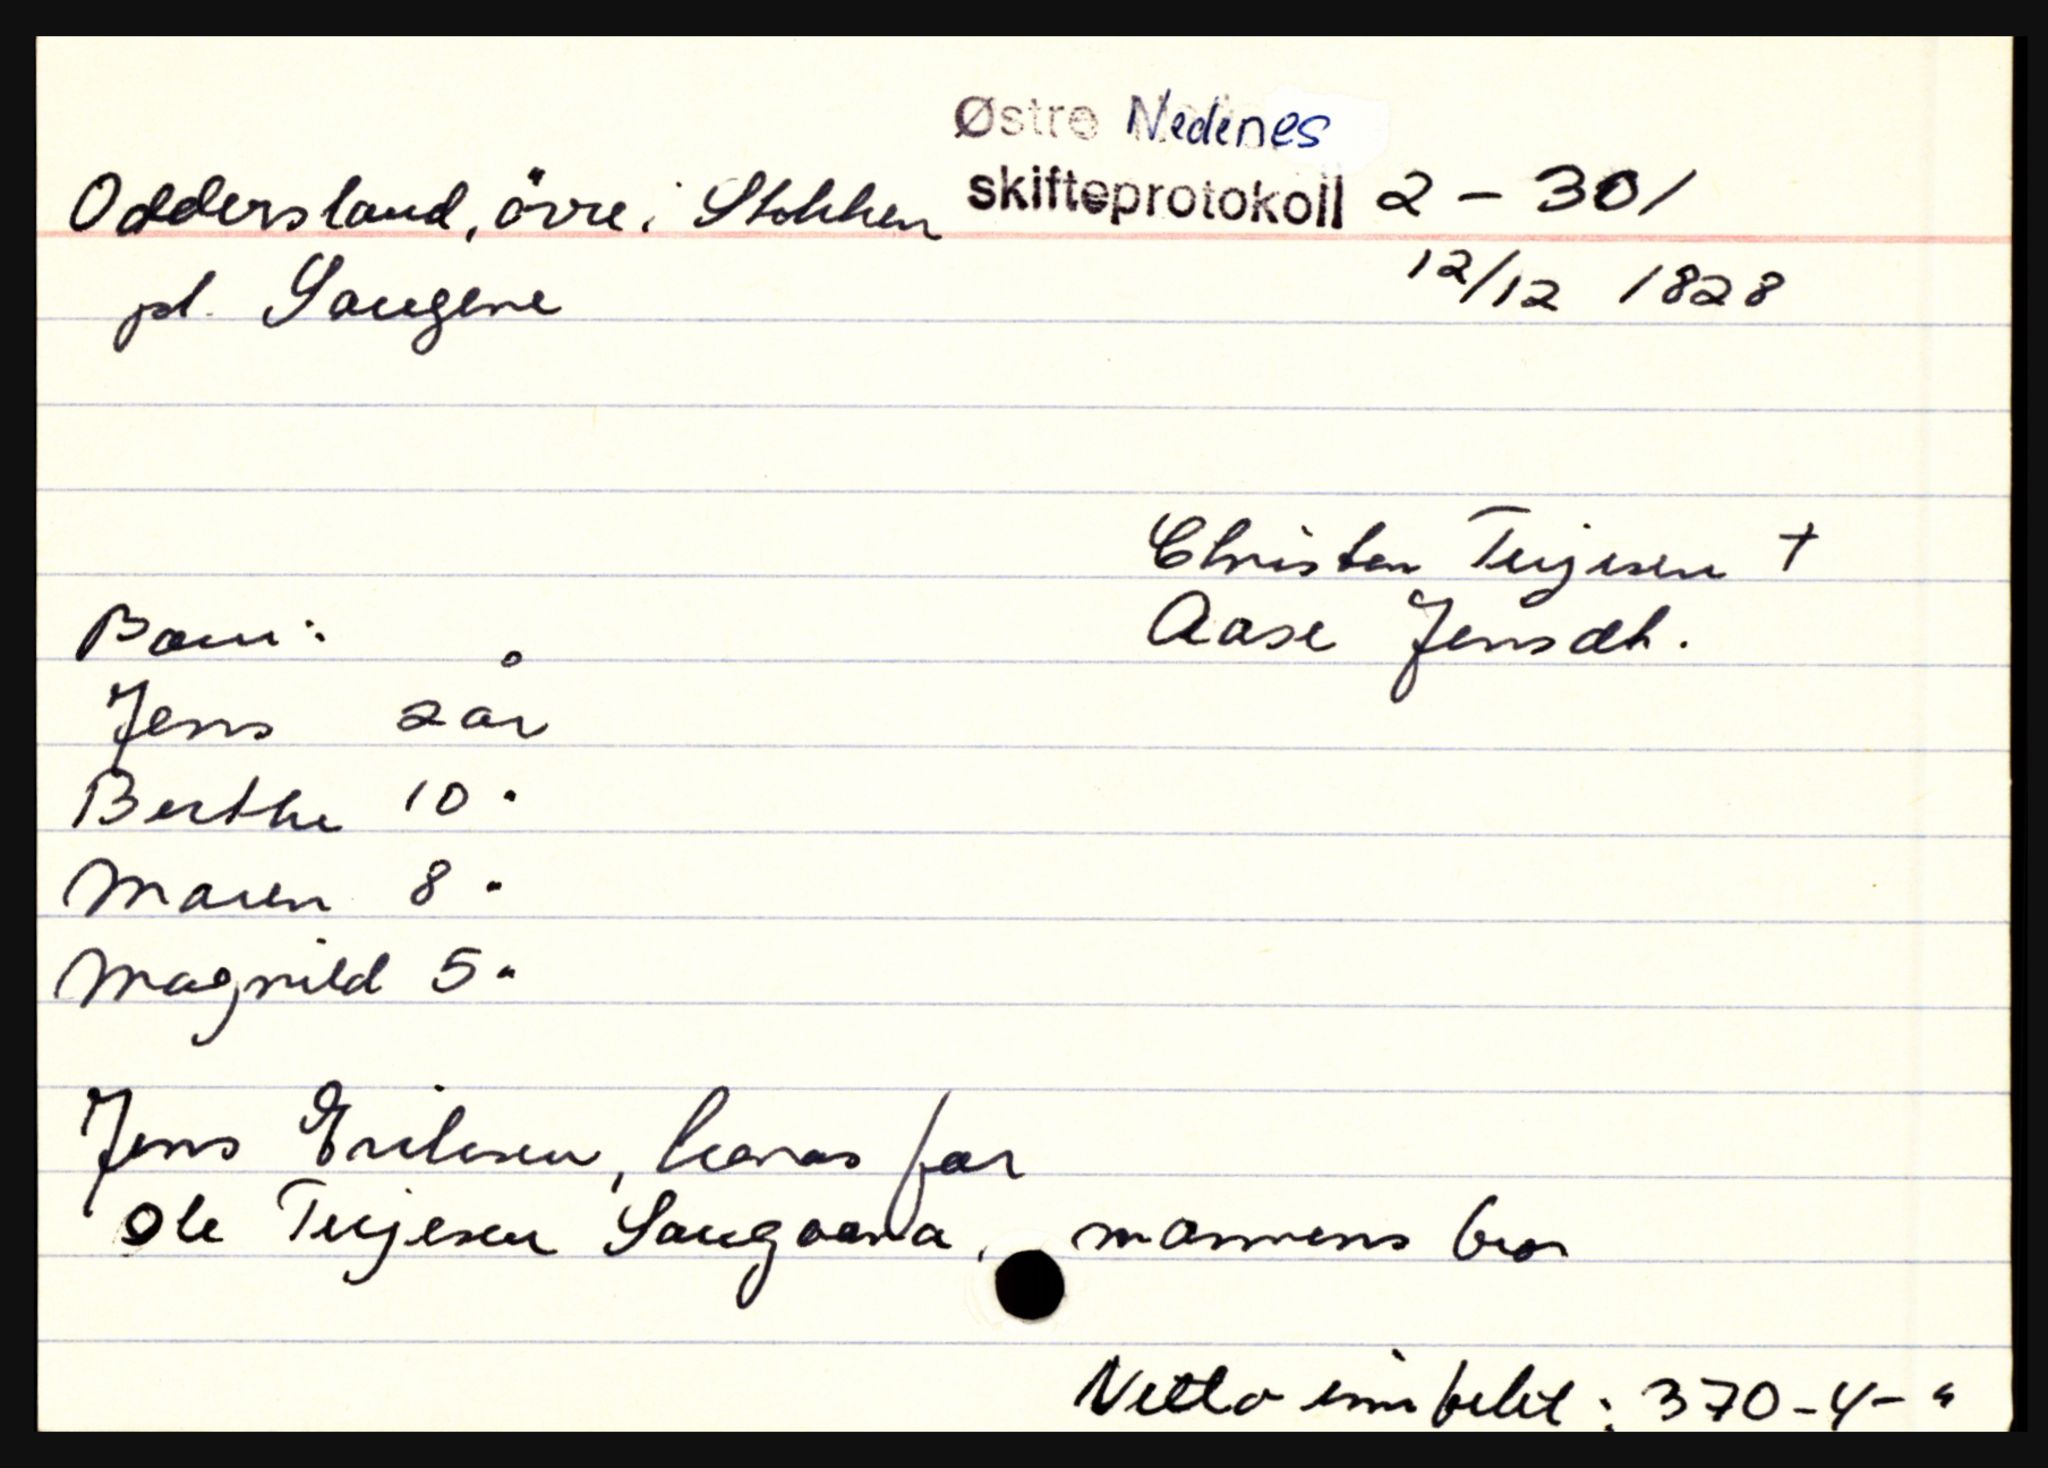 Østre Nedenes
Oddersland, övre i Stokken skifteprotokoll 2 - 301
pl. Saugene 12/12 1828
Christen Terjesen †
Barn: Aase Jensdt.
Jens 2 år
Berthe 10 "
Maren 8 "
Magnild 5 "
Jens Eriksen, konas far
Ole Terjesen Saugoena, mannens bror
Netto innbefet : 370 - 4 - "